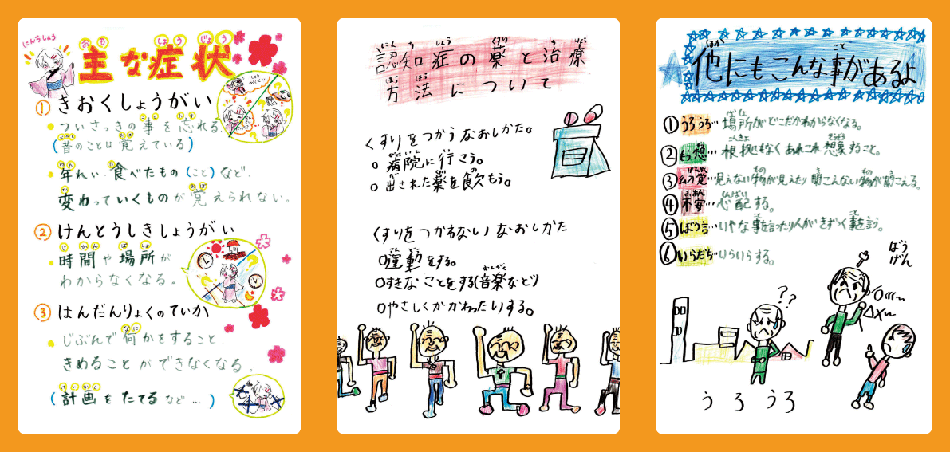 にんちしょう
主な症状
おも しょうじょう
① きおくしょうがい
・ついさっきの事を忘れる。
(昔のことは覚えている)
・年れい、食べたもの(こと)など、
変わっていくものが覚えられない。
② けんとうしきしょうがい
・時間や場所が
わからなくなる。
③ はんだんりょくのていか
・じぶんで何かをすること
きめることができなくなる。
(計画をたてるなど…)
認知症の薬と治療
方法について
くすりをつかうなおしかた。
○病院に行こう。
○出された薬を飲もう。
くすりをつかわない なおしかた
○運動をする。
○すきなことをする(音楽など)
○やさしくかかわったりする。
他にもこんな事があるよ
① うろうろ…場所がどこだかわからなくなる。
② もう想…根拠もなくあれこれ想像すること。
③ げん覚…見えない物が見えたり聞こえない物が聞こえる。
④ 不安…心配する。
⑤ ぼう言…いやな事を言ったり人がきずつく事を言う。
⑥ いらだち…いらいらする。
??
ぼうげん
うろうろ